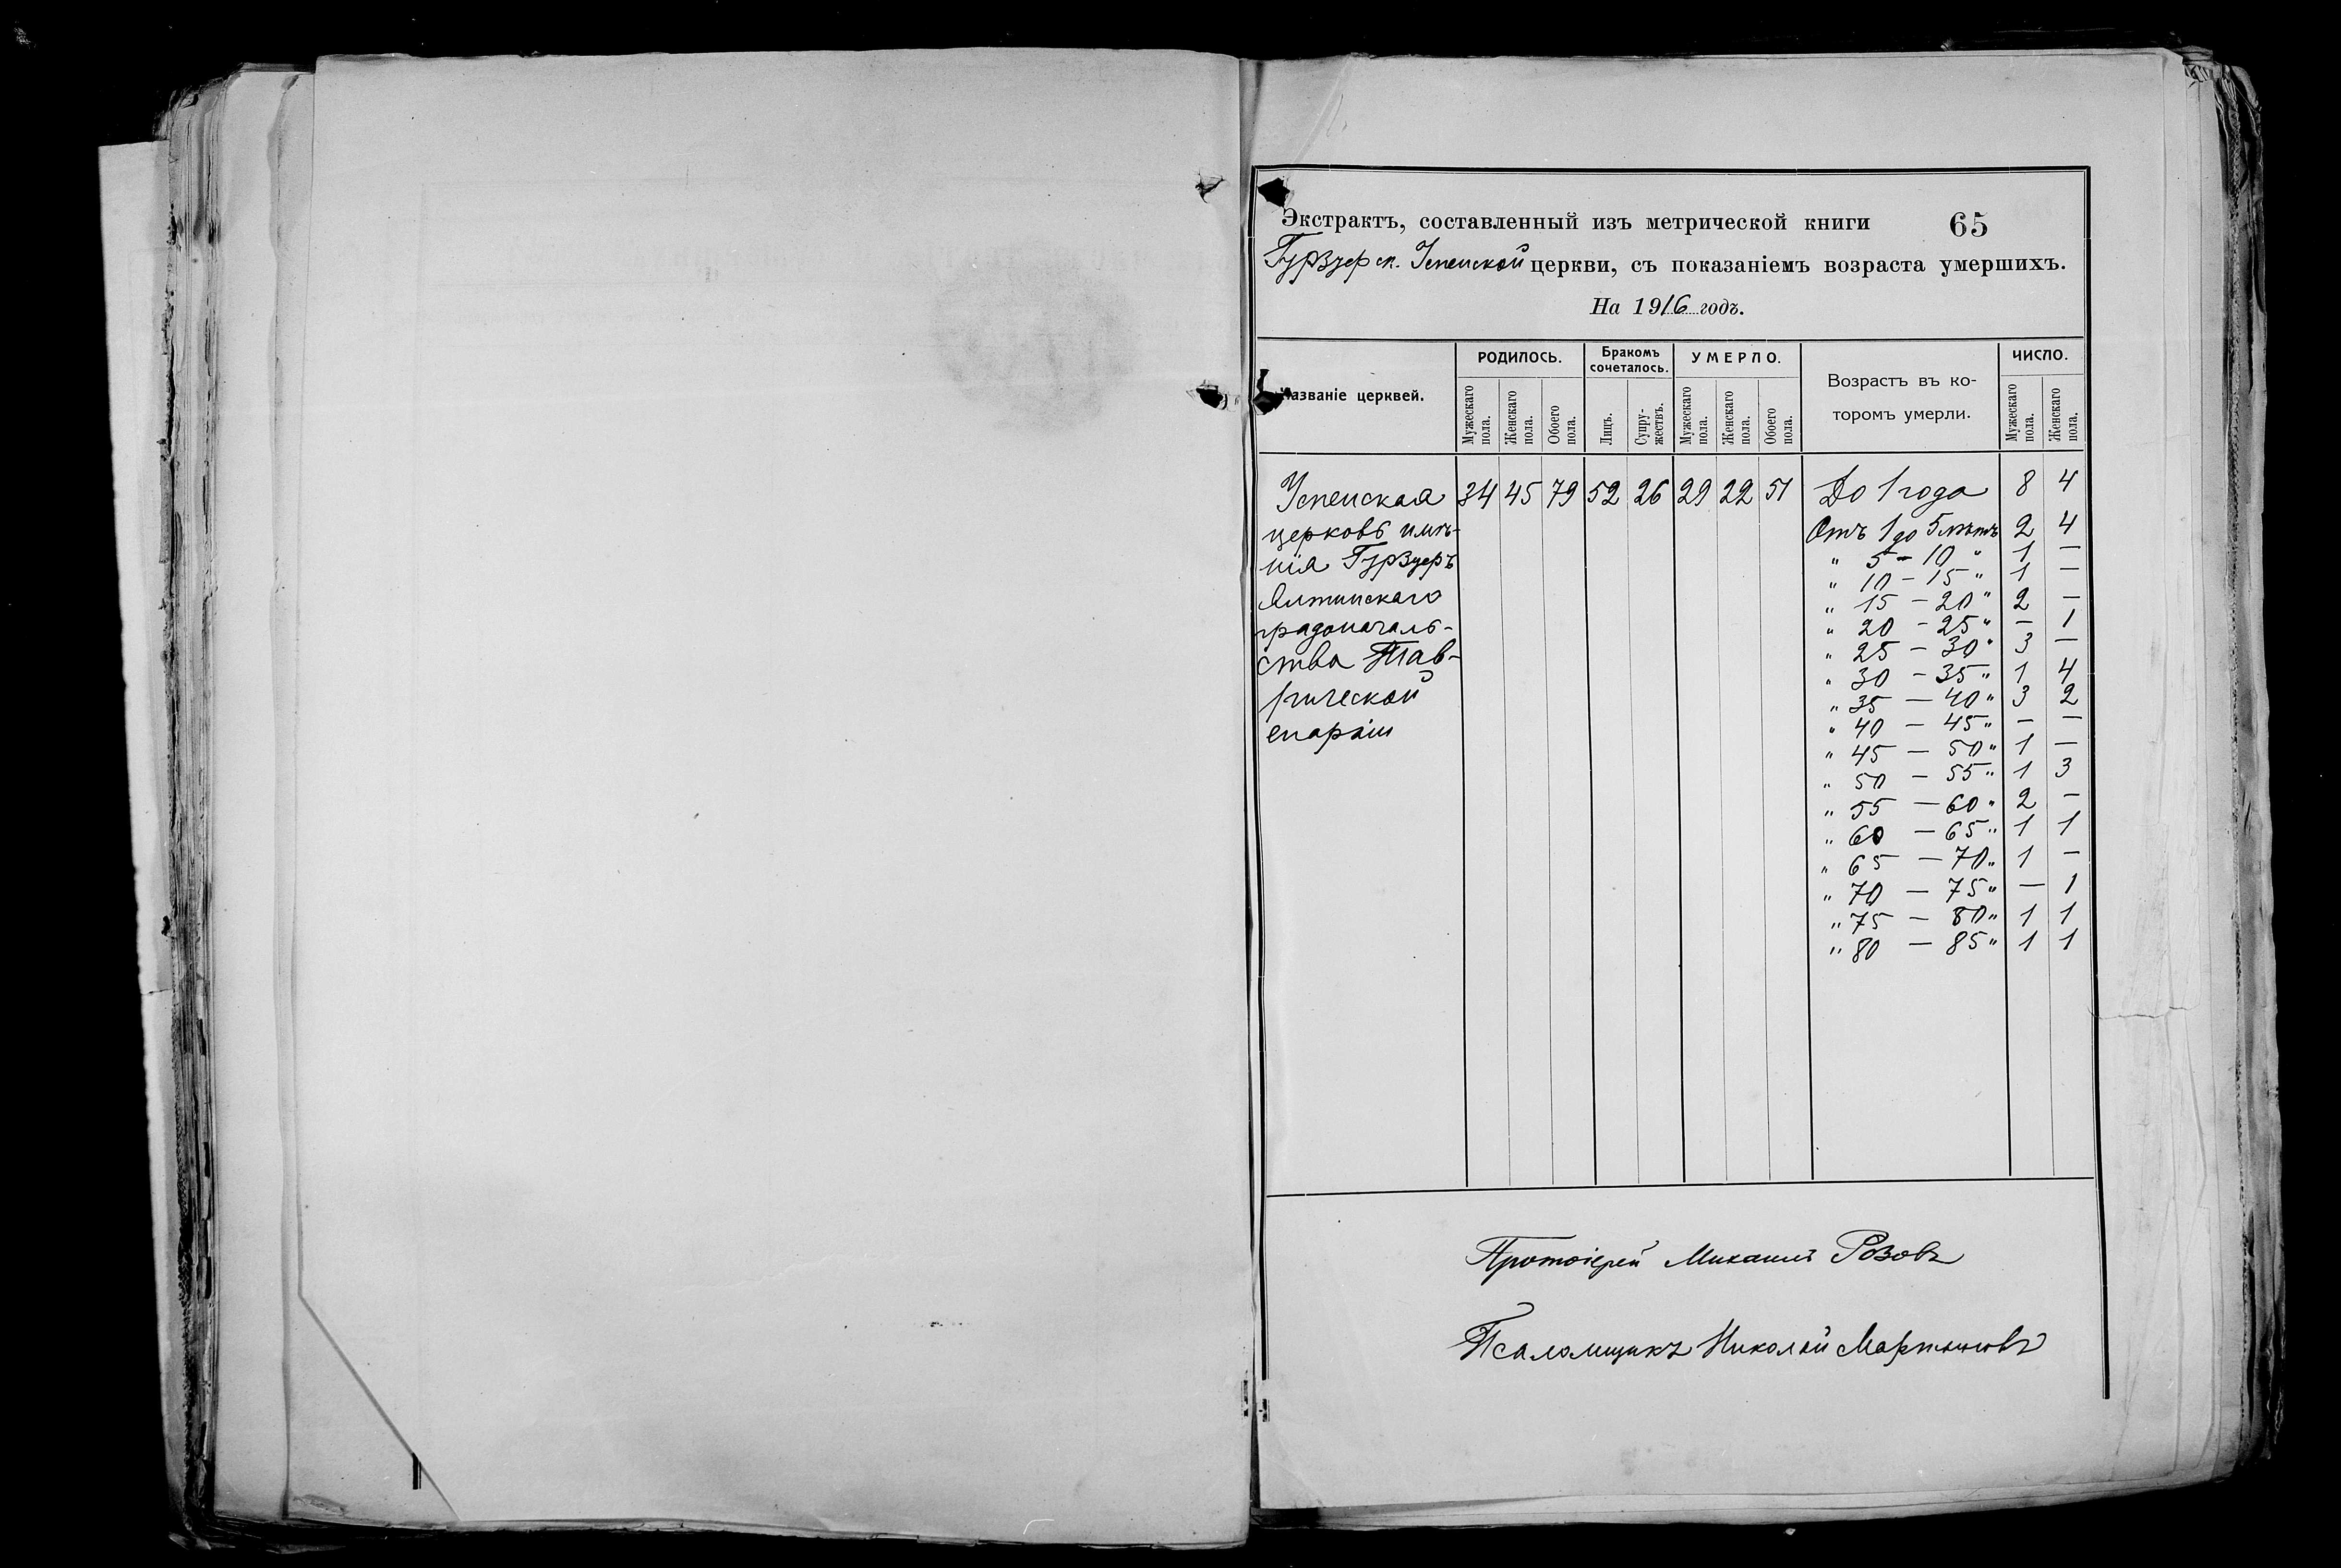 Экстрактъ, составленный изъ метрической книги 65
Гурзуф ск. Успенской церкви, съ показаніемъ возраста умершихъ.
На 1916 годъ.
Названіе церквей.
РОДИЛОСЬ.
Бракомъ сочеталось.
УМЕРЛО.
Возрастъ въ ко-
торомъ умерли.
ЧИСЛО.
Мужескаго пола.
Женскаго пола.
Обоего пола.
Лицъ.
Супру-
жествъ.
Мужескаго пола.
Женскаго пола.
Обоего пола.
Мужескаго пола.
Женскаго пола.
Успенская 34 45 79 52 26 29 22 51 До 1 года 8 4
церковь имѣ- Отъ 1 до 5 лѣтъ 2 4
нія Гурзуфъ " 5 - 10 " 1 —
" 10 - 15 " 1 —
Ялтинскаго " 15 - 20 " 2 —
градоначаль- " 20 - 25 " — 1
ства Тав- " 25 - 30 " 3 —
" 30 - 35 " 1 4
рической " 35 — 40 " 3 2
епархіи " 40 — 45 " — —
" 45 — 50 " 1 —
" 50 — 55 " 1 3
" 55 — 60 " 2 —
" 60 — 65 " 1 1
" 65 — 70 " 1 —
" 70 — 75 " — 1
" 75 — 80 " 1 1
" 80 — 85 " 1 1
Протоіерей Михаилъ Розовъ
Псаломщикъ Николай Мартыновъ